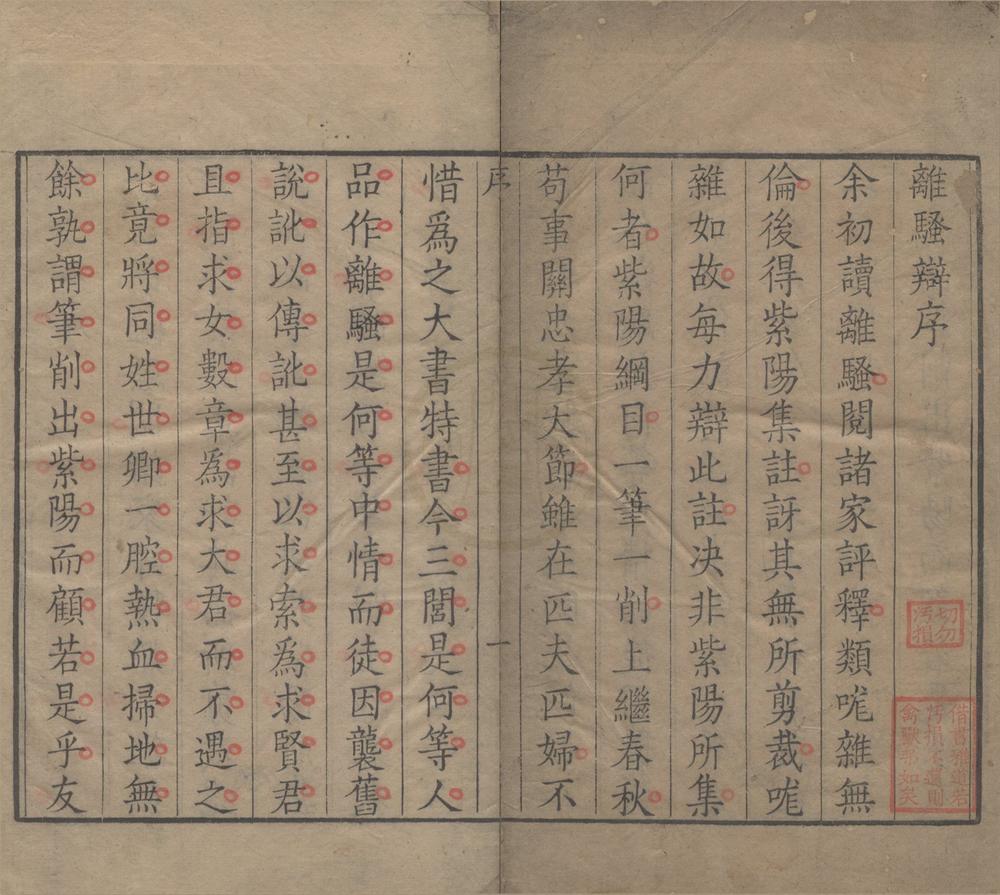 離騷辯序
余初讀離騷閱諸家評釋類哤雜無
倫後得紫陽集註訝其無所剪裁哤
雜如故每力辯此註决非紫陽所集
何者紫陽綱目一筆一削上繼春秋
苟事關忠孝大節雖在匹夫匹婦不
序
一
惜爲之大書特書今三閭是何等人
品作離騷是何等中情而徒因襲舊
說訛以傳訛甚至以求索爲求賢君
且指求女數章爲求大君而不遇之
比竟將同姓世卿一腔熱血掃地無
餘孰謂筆削出紫陽而顧若是乎友
切勿
汚損
借書雅道若
汚損不還則
禽獸弗如矣